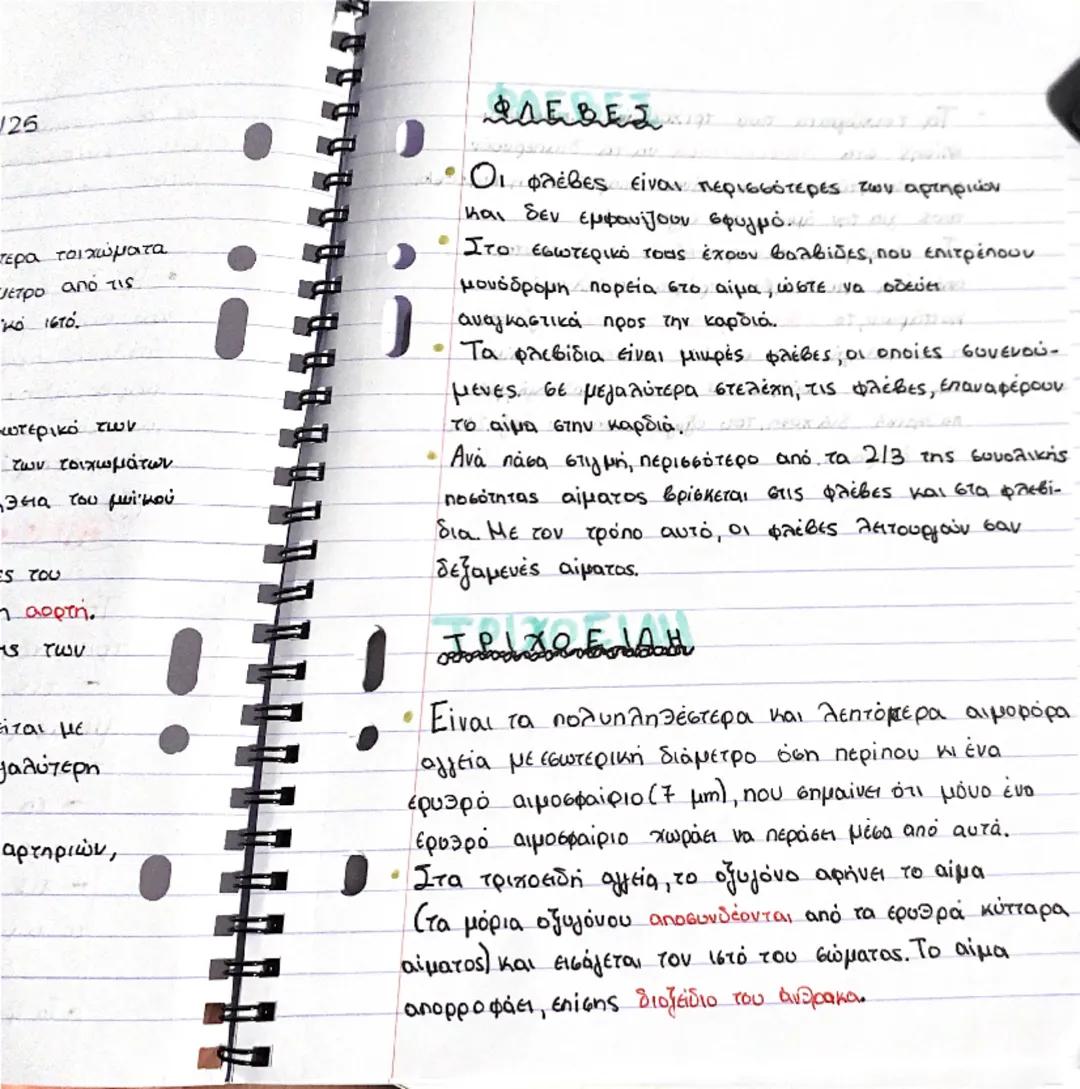 /25
τερα τοιχώματα
μετρο από τις
ικό ιστό.
ωτερικό των
των τοιχωμάτων
θεια του μυϊκού
ες του
η αορτή.
ις των
είται με
γαλύτερη
αρτηριών,
ΦΛΕΒΕΣ
• Οι φλέβες είναι περισσότερες των αρτηριών
και δεν εμφανίζουν σφυγμό.
• Στο εσωτερικό τους έχουν βαλβίδες, που επιτρέπουν
μονόδρομη πορεία στο αίμα, ώστε να οδεύει
αναγκαστικά προς την καρδιά.
• Τα φλεβίδια είναι μικρές φλέβες, οι οποίες συνενού-
μενες σε μεγαλύτερα στελέχη, τις φλέβες, επαναφέρουν
το αίμα στην καρδιά.
• Ανά πάσα στιγμή, περισσότερο από τα 2/3 της συνολικής
ποσότητας αίματος βρίσκεται στις φλέβες και στα φλεβί-
δια. Με τον τρόπο αυτό, οι φλέβες λειτουργούν σαν
δεξαμενές αίματος.
ΤΡΙΧΟΕΙΔΗ
• Είναι τα πολυπληθέστερα και λεπτότερα αιμοφόρα
αγγεία με εσωτερική διάμετρο όση περίπου κι ένα
ερυθρό αιμοσφαίριο (7 μm), που σημαίνει ότι μόνο ένα
ερυθρό αιμοσφαίριο χωράει να περάσει μέσα από αυτά.
• Στα τριχοειδή αγγεία, το οξυγόνο αφήνει το αίμα
(τα μόρια οξυγόνου αποσυνδέονται από τα ερυθρά κύτταρα
αίματος) και εισάγεται τον ιστό του σώματος. Το αίμα
απορροφάει, επίσης διοξείδιο του άνθρακα.